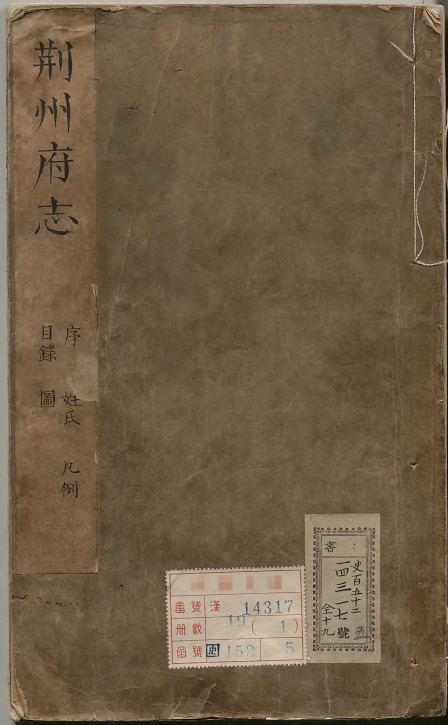 荆州府志
序 姓氏 凡例
目錄 圖
書
史百五十二
一四三一七號
全十九
五
番號 漢 14317
冊數 19 ( 1 )
函號 史 152 5